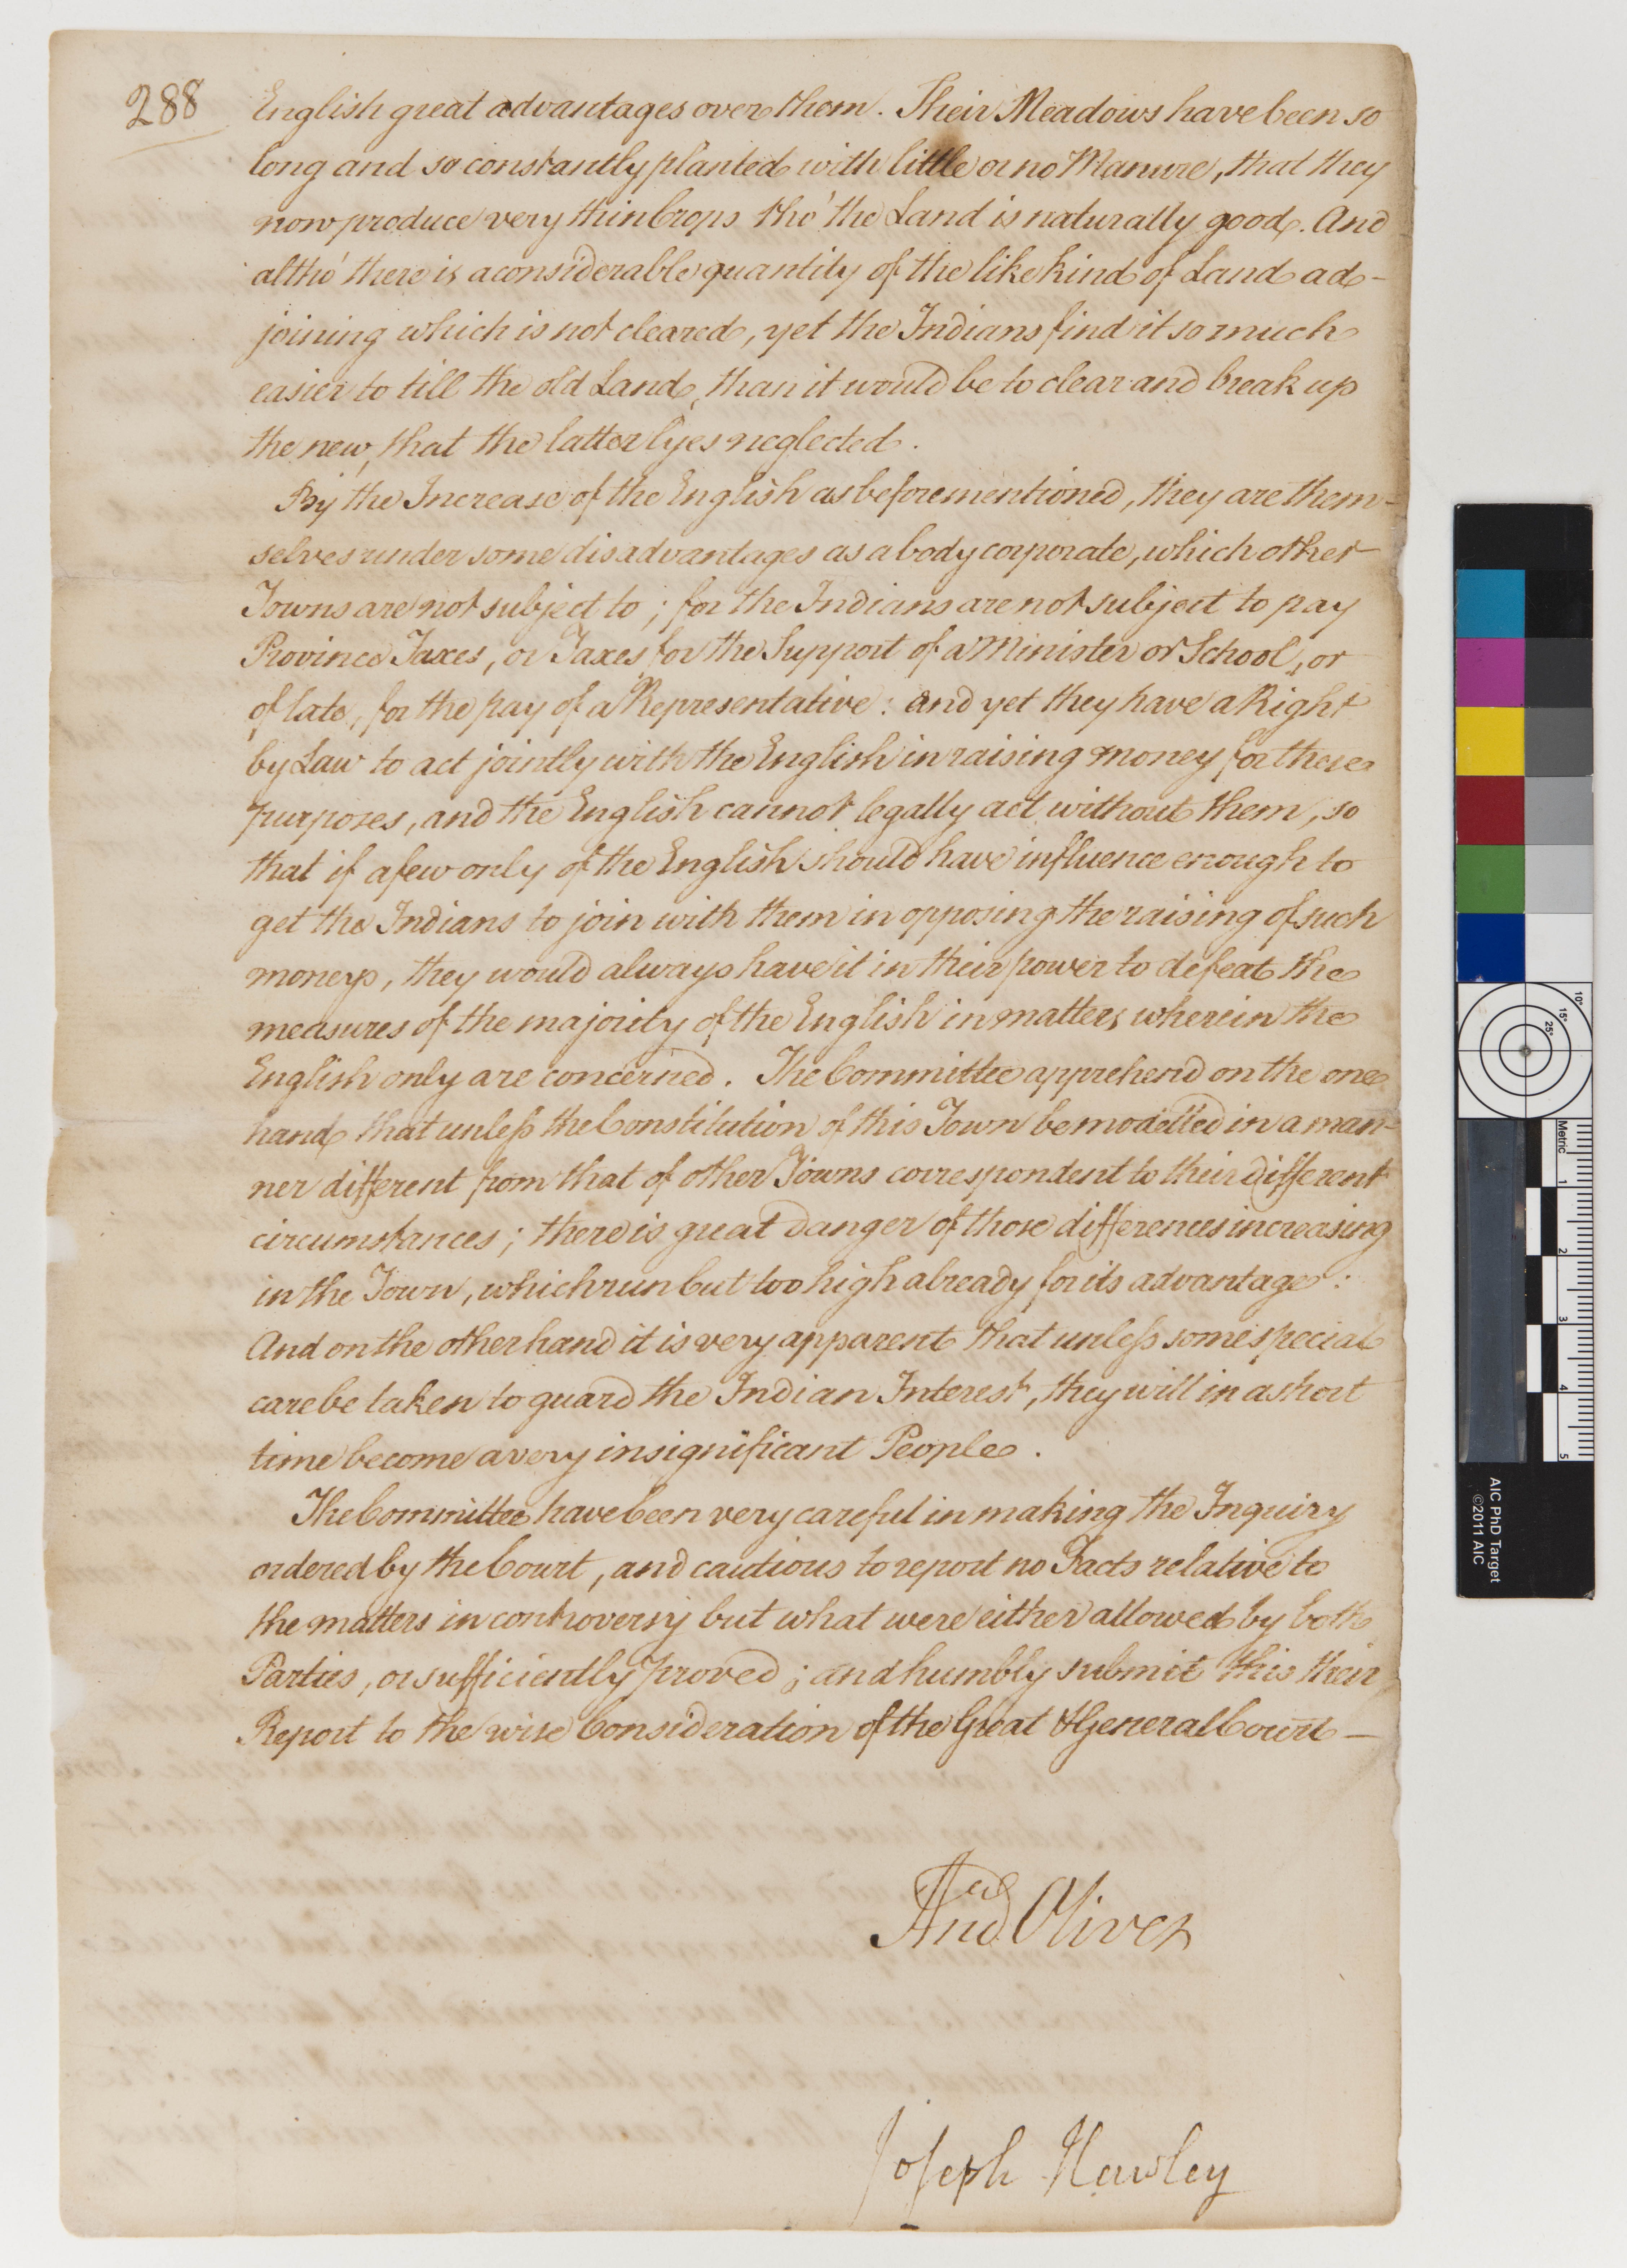 288
English great advantages over them. Their Meadows have been so
long and so constantly planted with little or no Manure, that they
now produce very thin Crops tho' the Land is naturally good. And
altho' there is a considerable quantity of the like kind of Land ad-
joining which is not cleared, yet the Indians find it so much
easier to till the old Land, than it would be to clear and break up
the new, that the latter lyes neglected.
By the Increase of the English as beforementioned, they are them-
selves under some disadvantages as a body corporate, which other
Towns are not subject to; for the Indians are not subject to pay
Province Taxes, or Taxes for the Support of a Minister or School, or
of late, for the pay of a Representative: and yet they have a Right
by Law to act jointly with the English in raising money for these
purposes, and the English cannot legally act without them, so
that if a few only of the English should have influence enough to
get the Indians to join with them in opposing the raising of such
moneys, they would always have it in their power to defeat the
measures of the majority of the English in matters wherein the
English only are concerned. The Committee apprehend on the one
hand that unless the Constitution of this Town be modelled in a man-
ner different from that of other Towns correspondent to their different
circumstances; there is great danger of those differences increasing
in the Town, which run but too high already for its advantage:
And on the other hand it is very apparent that unless some special
care be taken to guard the Indian Interest, they will in a short
time become a very insignificant People.
The Committee have been very careful in making the Inquiry
ordered by the Court, and cautious to report no Facts relative to
the matters in controversy but what were either allowed by both
Parties, or sufficiently proved; and humbly submit this their
Report to the wise Consideration of the Great & General Court—
And Oliver
Joseph Hawley
10°
15°
25°
Metric
1
2
3
4
5
AIC PhD Target
©2011 AIC